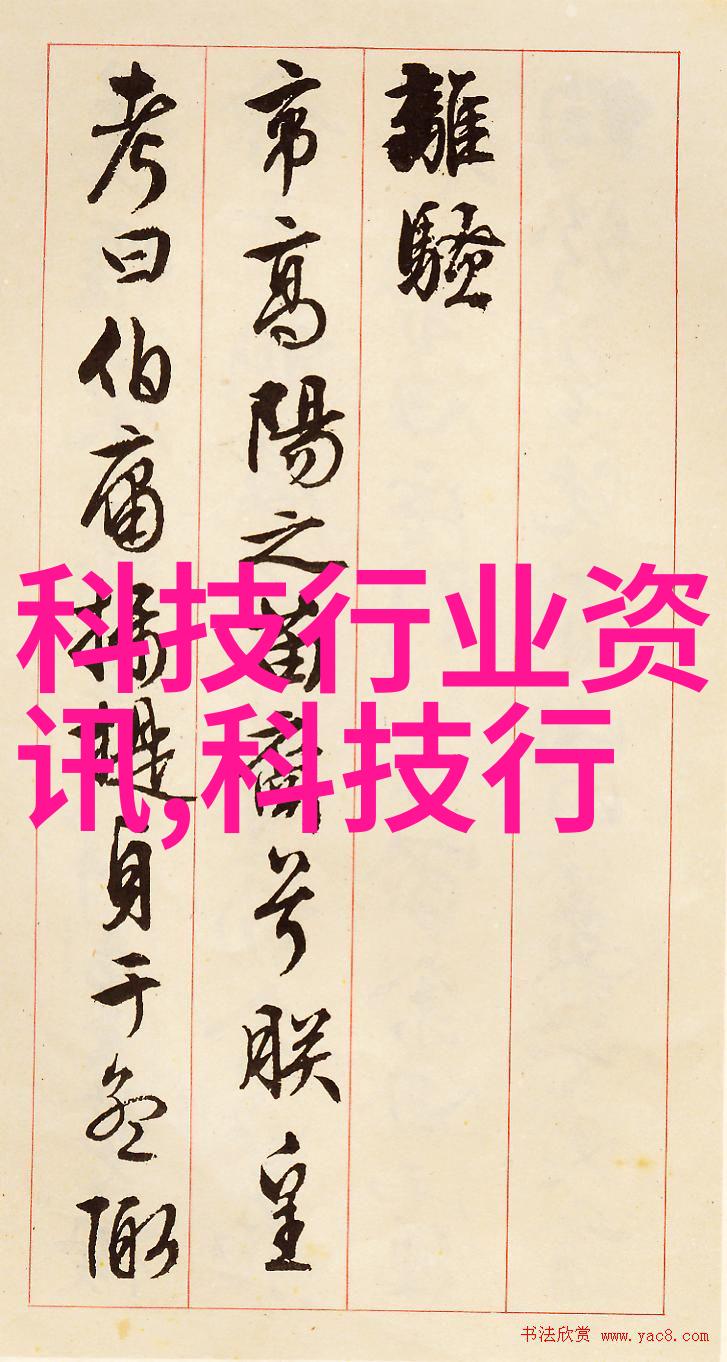 離騷
帝高陽之苗裔兮朕皇
考曰伯庸攝提貞于孟陬
科技行业资
讯,科技行
书法欣赏 www.yac8.com